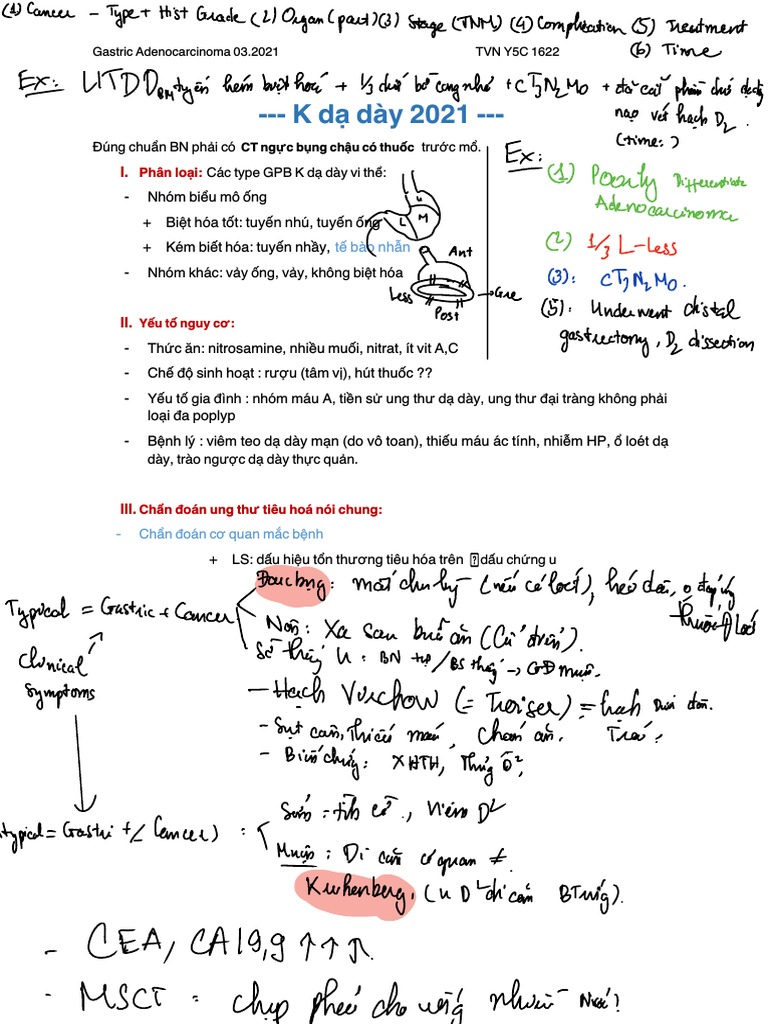 (1) Cancer - Type + Hist Grade (2) Organ (part) (3) Stage (TNM) (4) Complication (5) Treatment
(6) Time
Gastric Adenocarcinoma 03.2021 TVN Y5C 1622
Ex: UTDD BM tuyến kém biệt hoá + 1/3 dưới bờ cong nhỏ + cT3N2M0 + đã cắt phần dưới dạ dày
nạo vét hạch D2.
(time: )
--- K dạ dày 2021 ---
Đúng chuẩn BN phải có CT ngực bụng chậu có thuốc trước mổ.
I. Phân loại: Các type GPB K dạ dày vi thể:
- Nhóm biểu mô ống
+ Biệt hóa tốt: tuyến nhú, tuyến ống
+ Kém biết hóa: tuyến nhầy, tế bào nhẫn
- Nhóm khác: vảy ống, vảy, không biệt hóa
U
M
L
Ant
Less
Gre
Post
Ex:
(1) Poorly Differentiate
Adenocarcinoma
(2) 1/3 L-Less
(3): cT3N2M0.
(5): Underwent distal
gastrectomy, D2 dissection
II. Yếu tố nguy cơ:
- Thức ăn: nitrosamine, nhiều muối, nitrat, ít vit A,C
- Chế độ sinh hoạt : rượu (tâm vị), hút thuốc ??
- Yếu tố gia đình : nhóm máu A, tiền sử ung thư dạ dày, ung thư đại tràng không phải
loại đa poplyp
- Bệnh lý : viêm teo dạ dày mạn (do vô toan), thiếu máu ác tính, nhiễm HP, ổ loét dạ
dày, trào ngược dạ dày thực quản.
III. Chẩn đoán ung thư tiêu hoá nói chung:
- Chẩn đoán cơ quan mắc bệnh
+ LS: dấu hiệu tổn thương tiêu hóa trên dấu chứng u
Đau bụng: mất chu kỳ (nếu có loét), kéo dài, o đáp ứng
thuốc loét
Typical = Gastric + Cancer
Nôn: Xa sau bữa ăn (Cũ trên).
Clinical
Symptoms
Sờ thấy U: BN tự / BS thấy → GĐ muộn.
- Hạch Virchow (= Troiser) = hạch trên đòn.
Trái.
- Sụt cân, Thiếu máu, Chán ăn.
- Biến chứng: XHTH, Thủng Ổ2,
Sớm = tình cờ, Viêm D2
typical = Gastri +/- Cancer) :
Muộn: Di căn cơ quan ≠.
Krukenberg. (U D2 di căn BTrứng).
- CEA, CA19,9 ↑↑↑.
- MSCT: chụp phổi cho uống nhiều Nước?